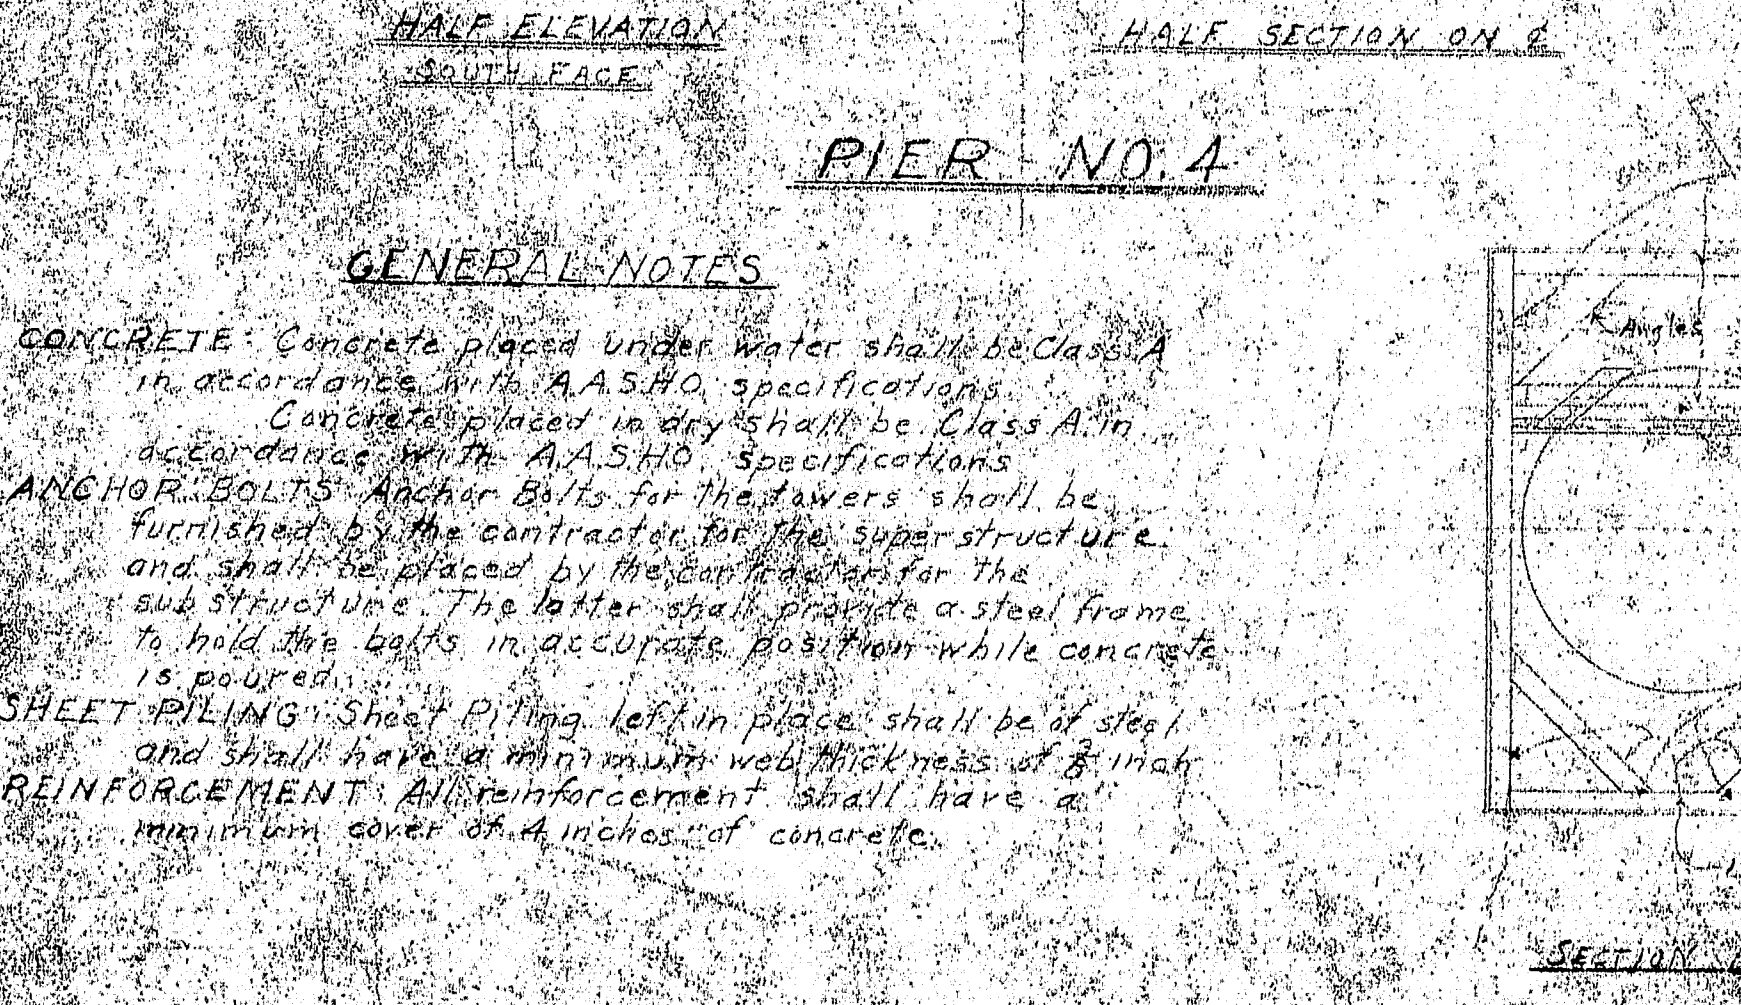 HALF ELEVATION
SOUTH FACE
HALF SECTION ON ℄
PIER NO. 4
GENERAL NOTES
CONCRETE: Concrete placed under water shall be Class A
in accordance with A.A.S.H.O. specifications
Concrete placed in dry shall be Class A in
accordance with A.A.S.H.O. specifications
ANCHOR BOLTS: Anchor Bolts for the towers shall be
furnished by the contractor for the superstructure
and shall be placed by the contractor for the
substructure. The latter shall provide a steel frame
to hold the bolts in accurate position while concrete
is poured.
SHEET PILING: Sheet Piling left in place shall be of steel
and shall have a minimum web thickness of 3/8 inch
REINFORCEMENT: All reinforcement shall have a
minimum cover of 4 inches of concrete.
Angles
SECTION